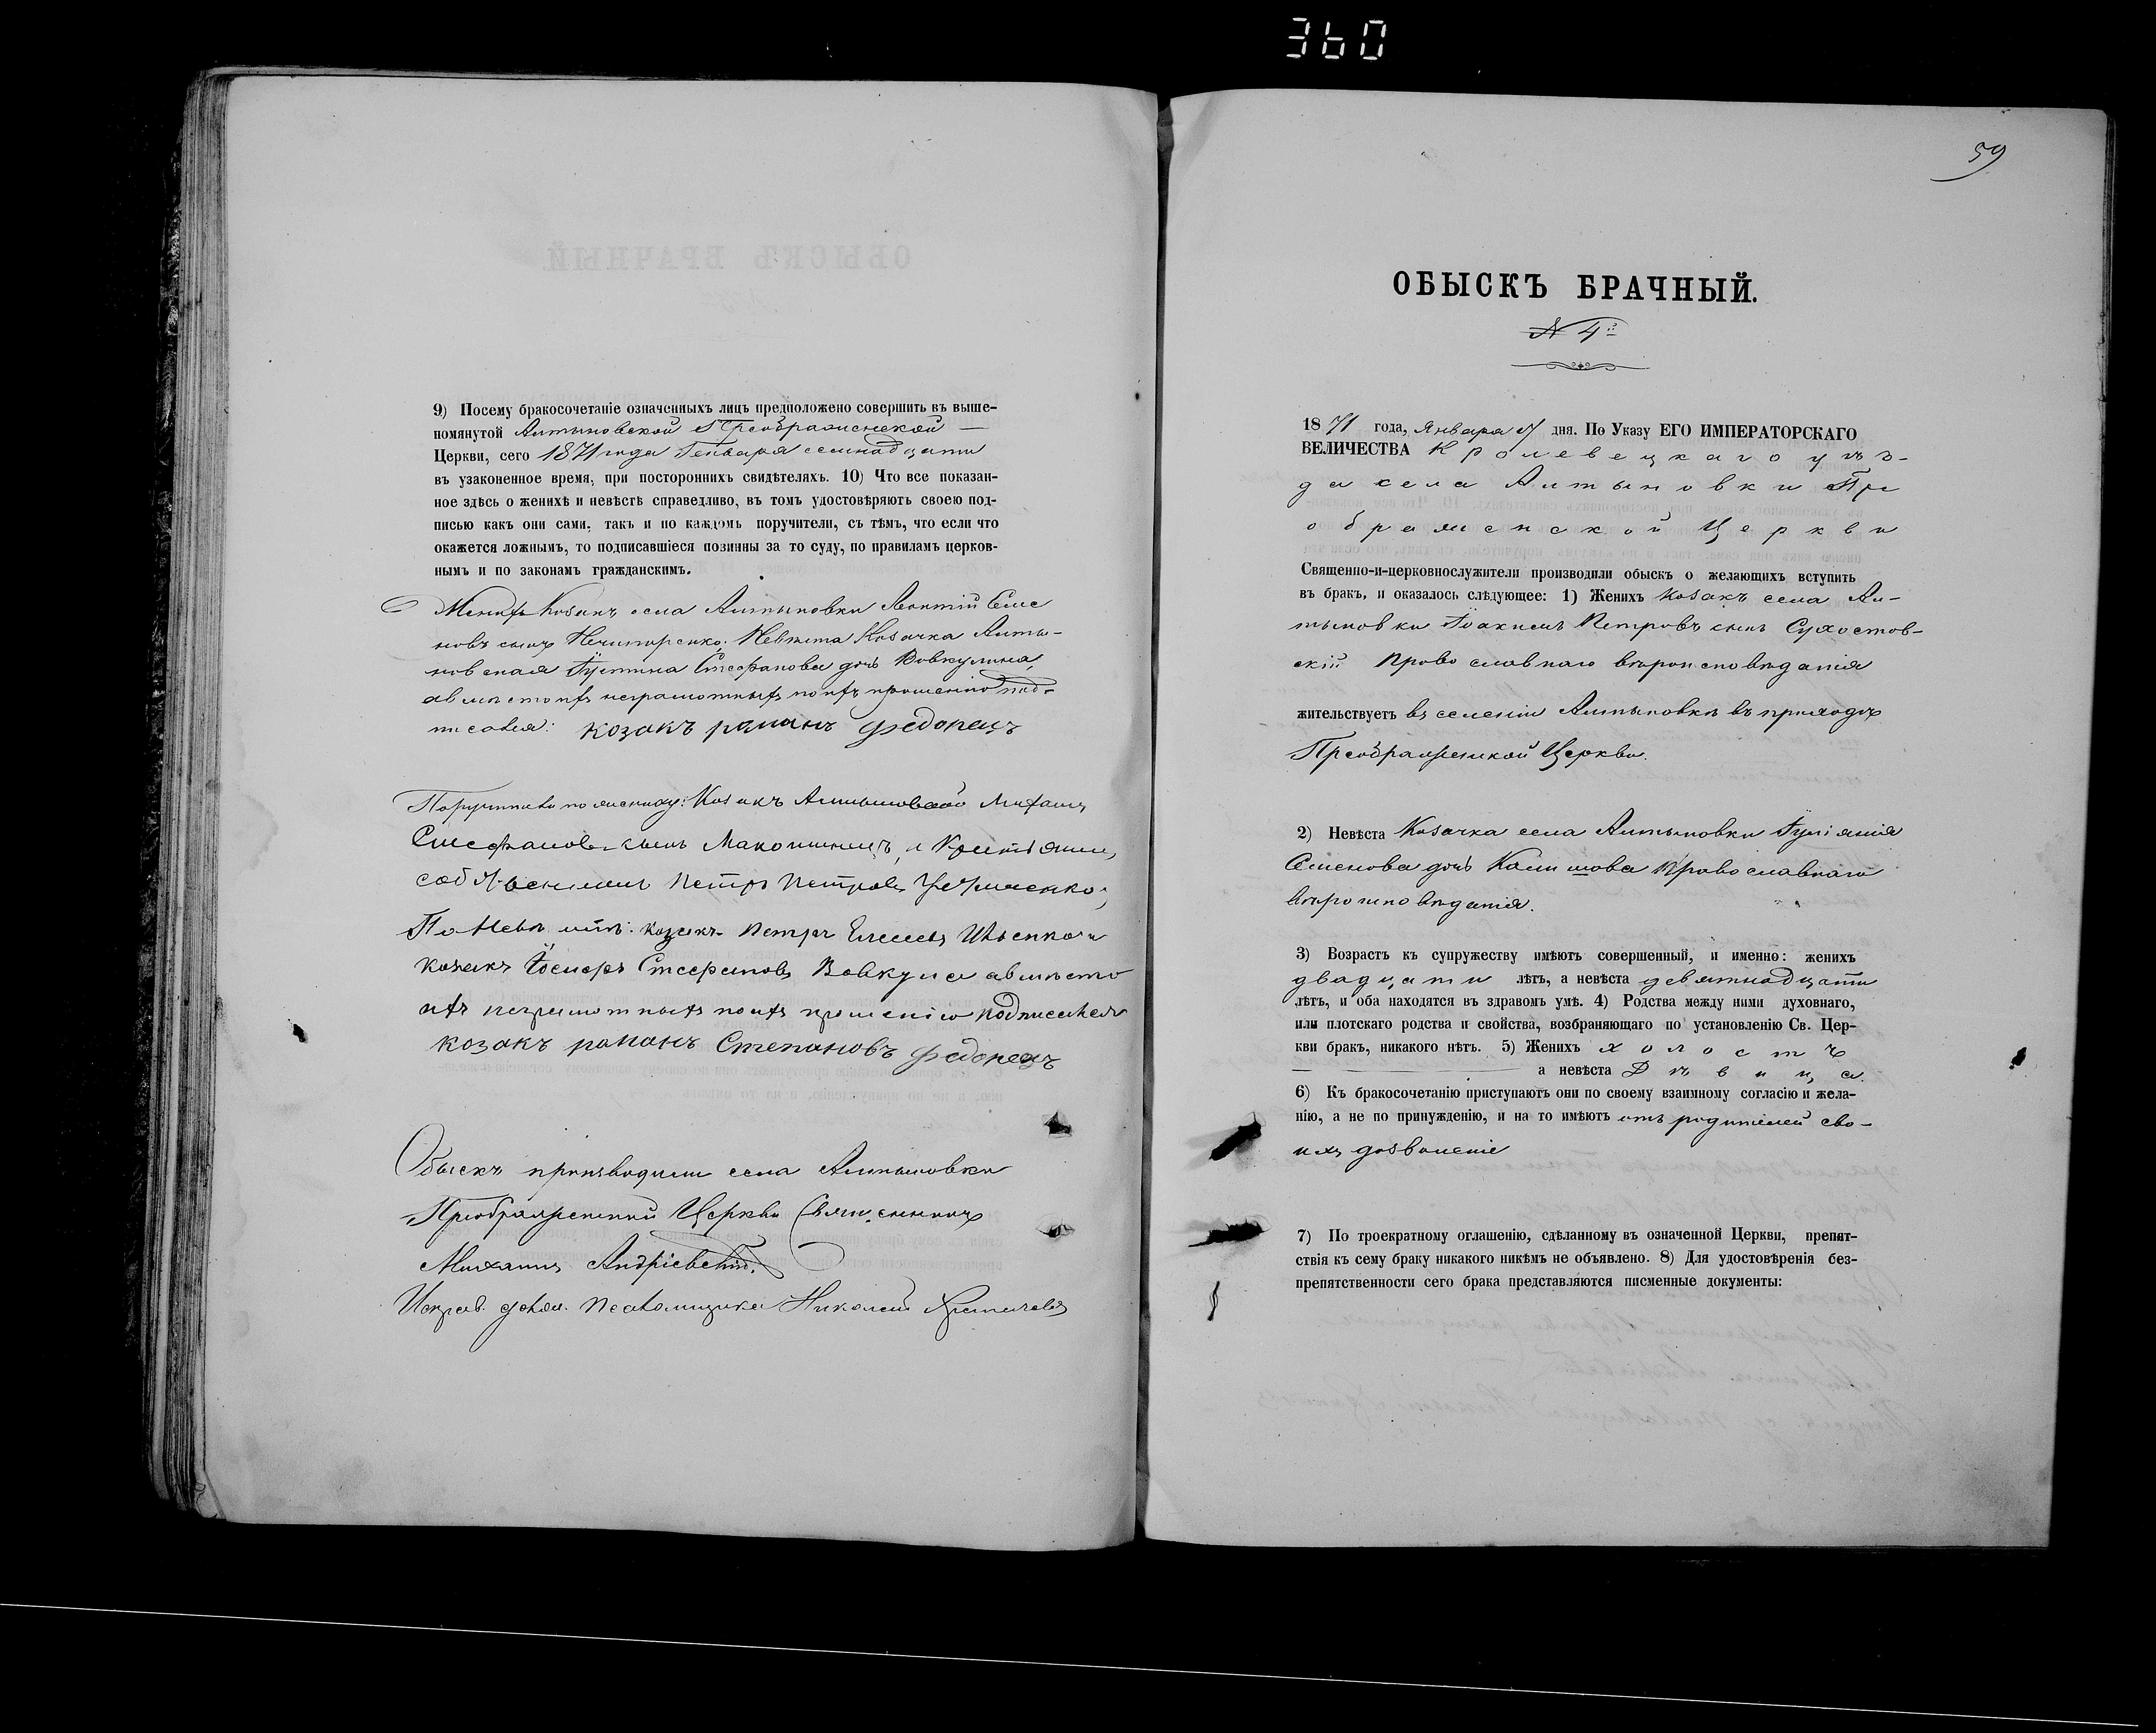 360
9) Посему бракосочетаніе означенныхъ лицъ предположено совершить въ выше-
помянутой Алтыновской Преображенской —
Церкви, сего 1871 года Генваря семнадцати
въ узаконенное время, при постороннихъ свидѣтеляхъ. 10) Что все показан-
ное здѣсь о женихѣ и невѣстѣ справедливо, въ томъ удостовѣряютъ своею под-
писью какъ они сами, такъ и по каждомъ поручители, съ тѣмъ, что если что
окажется ложнымъ, то подписавшіеся повинны за то суду, по правиламъ церков-
нымъ и по законамъ гражданскимъ.
Женихъ Козакъ села Алтыновки Леонтій
сынъ Нечипоренко; Невѣста Козачка Алты-
новская Іустина Стефанова дочь Вовкулина,
а вмѣсто ихъ неграмотныхъ по ихъ прошенію под-
писался: козакъ раманъ федорецъ
Поручители по жениху: Козакъ Алтыновский Михаилъ
Стефановъ сынъ и Крестьянинъ
собственникъ Петръ Петровъ
По Невѣстѣ: козакъ Петръ и
козакъ Іосифъ Стефановъ Вовкула а вмѣсто
ихъ неграмотныхъ по ихъ прошенію подписался
козакъ раманъ Степановъ федорецъ
Обыскъ производили села Алтыновки
Преображенской Церкви Священникъ
Михаилъ Андріевскій.
Исправ. должн. Псаломщика Николай
59
ОБЫСКЪ БРАЧНЫЙ.
№ 4й
1871 года, Января 17 дня. По Указу ЕГО ИМПЕРАТОРСКАГО
ВЕЛИЧЕСТВА Кролевецкаго уѣз-
да села Алтыновки Пре
ображенской Церкви
Священно-и-церковнослужители производили обыскъ о желающихъ вступить
въ бракъ, и оказалось слѣдующее: 1) Женихъ Козакъ села Ал-
тыновки Іоакимъ Петровъ сынъ Сухостов-
скій Православнаго вѣроисповѣданія
жительствуетъ въ селеніи Алтыновкѣ въ приходѣ
Преображенской Церкви.
2) Невѣста Козачка села Алтыновки Іуліанія
Семенова дочь Православнаго
вѣроисповѣданія.
3) Возрастъ къ супружеству имѣютъ совершенный, и именно: женихъ
двадцати лѣтъ, а невѣста девятнадцати
лѣтъ, и оба находятся въ здравомъ умѣ. 4) Родства между ними духовнаго,
или плотскаго родства и свойства, возбраняющаго по установленію Св. Цер-
кви бракъ, никакого нѣтъ. 5) Женихъ холостъ
а невѣста Дѣвица.
6) Къ бракосочетанію приступаютъ они по своему взаимному согласію и жела-
нію, а не по принужденію, и на то имѣютъ отъ родителей сво-
ихъ дозволеніе
7) По троекратному оглашенію, сдѣланному въ означенной Церкви, препят-
ствія къ сему браку никакого никѣмъ не объявлено. 8) Для удостовѣренія без-
препятственности сего брака представляются писменные документы: